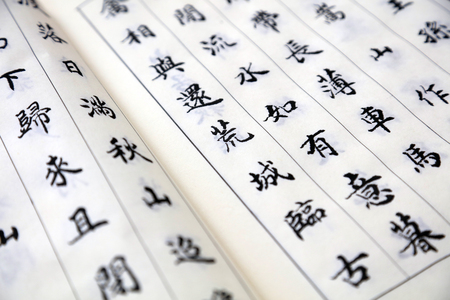 王孫
嵩山作
帶長薄車馬
閒流水如有意暮
禽相與還荒城臨古
落日滿秋山迢
下歸來且閉